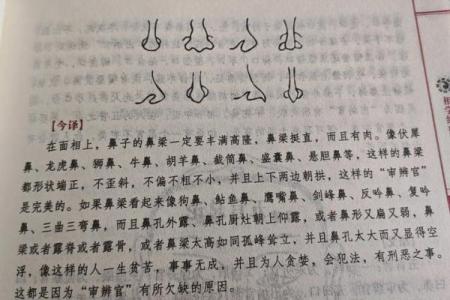 【今译】
在面相上，鼻子的鼻梁一定要丰满高隆，鼻梁挺直，而且有肉。像伏犀
鼻、龙虎鼻、狮鼻、牛鼻、胡羊鼻、截筒鼻、盛囊鼻、悬胆鼻等，这样的鼻梁
都形状端正，不歪斜，不偏不粗不小，并且上下两边朝拱，这样的“审辨官”
是完美的。如果鼻梁看起来像狗鼻、鲇鱼鼻、鹰嘴鼻、剑峰鼻、反吟鼻、复吟
鼻、三曲三弯鼻，而且鼻孔外露、鼻孔厨灶朝上仰露，或者鼻形又扁又弱，鼻
梁或者露脊或者露骨，或者鼻梁太高如同孤峰耸立，并且鼻孔太大而又显得空
浮，像这样的人一生贫苦，事事无成，并且为人贪婪，会犯法，有刑恶之事。
这都是因为“审辨官”有所欠缺的原因。